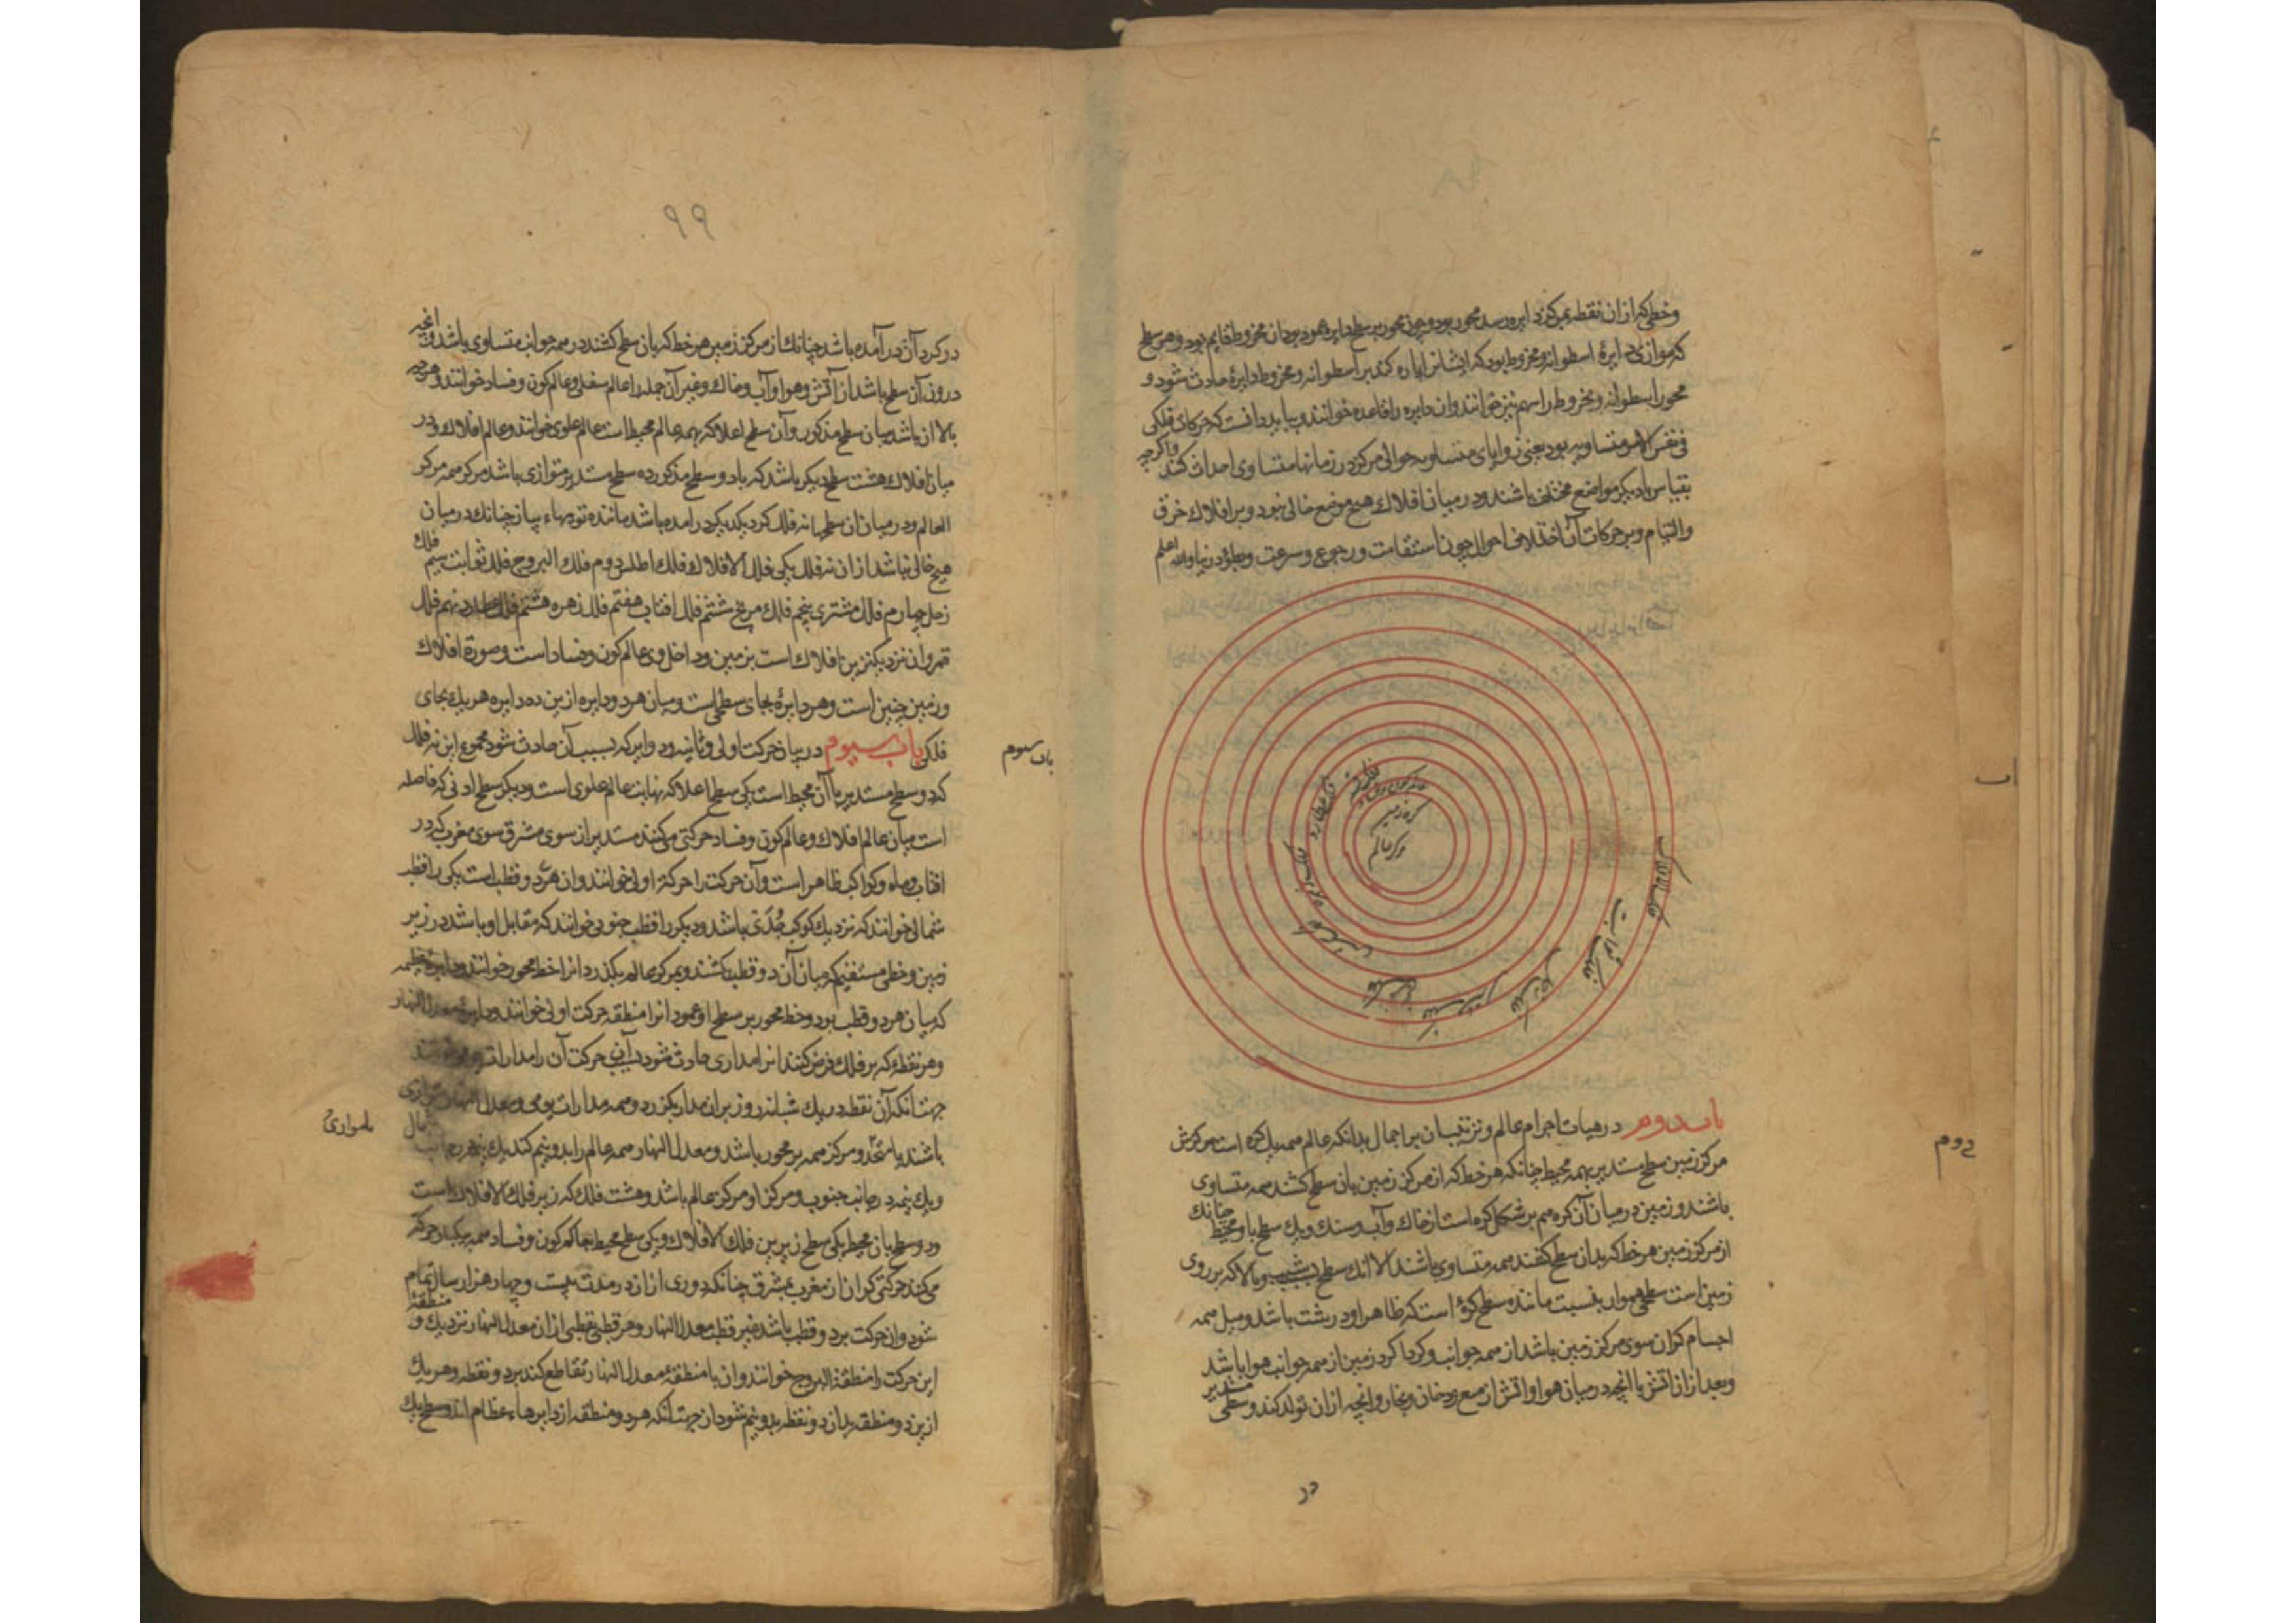 وخطی که از ان نقطه بمرکز دایره رسد محور بود و چون محور بر سطح دایره عمود بود ان مخروط قایم بود و هر سطح
که موازی دایرهٔ اسطوانه و مخروط بود که ایشانرا پاره کند بر اسطوانه و مخروط دایرهٔ حادث شود و
محور اسطوانه و مخروط را سهم نیز خوانند و ان دایره را قاعده خوانند و بباید دانست که حرکات فلکی
فی نفس الامر متساویه بود یعنی زوایای متساویه حوالی مرکز در زمانها متساوی احداث کند واکرچه
بقیاس با دیکر مواضع مختلف باشند و در میان افلاک هیچ موضع خالی نبود و بر افلاک خرق
والتیام و بر حرکات آن اختلاف احوال چون استقامت و رجوع و سرعت و بطؤ در نیاید والله اعلم
فلک الافلاک
فلک ثوابت
فلک زحل
فلک مشتری
فلک مریخ
فلک آفتاب
فلک زهره
فلک عطارد
فلک قمر
عالم کون و فساد
کره زمین
مرکز عالم
باب دوم در هیات اجرام عالم و ترتیب ان بر اجمال بدانکه عالم همه یک کره است مرکزش
مرکز زمین سطح مستدیر بهمه محیط چنانکه هر خط که از مرکز زمین بان سطح کشند همه متساوی
باشند و زمین در میان آن کره هم بر شکل کره است از خاک و آب و سنک و یک سطح باو محیط چنانک
از مرکز زمین هر خط که بدان سطح کشند همه متساوی باشند الا انک سطح شیب و بالا که بر روی
زمین است سطحی هموار بنسبت مانندهٔ سطح کوهٔ است که ظاهر او درشت باشد و میل همه
اجسام کران سوی مرکز زمین باشد از همه جوانب و کرداکرد زمین از همه جوانب هوا باشد
و بعد از ان اتش با انچه در میان هوا و اتش از مع دخان و بخار و انچه از ان تولد کند و سطحی مستدیر
دوم
در
۹۹
در کرد آن در آمده باشد چنانک از مرکز زمین هر خط که بان سطح کشند در همه جوانب متساوی باشد و انچه
درون آن سطح باشد از آتش و هوا و آب و خاک و غیر آن جمله را عالم سفلی و عالم کون و فساد خوانند و هرچه
بالا ان باشد میان سطح مذکور و آن سطح اعلا که بهمه عالم محیط است عالم علوی خوانند و عالم افلاک و در
میان افلاک هشت سطح دیکر باشد که با دو سطح مذکور ده سطح مستدیر متوازی باشد مرکز همه مرکز
العالم و در میان ان سطحها نه فلک کرد یکدیکر در امده باشد مانندهٔ تویهاء پیاز چنانک در میان
هیچ خالی نباشد از ان نه فلک یکی فلک الافلاک فلک اطلس دوم فلک البروج فلک ثوابت سیم فلک
زحل چهارم فلک مشتری پنجم فلک مریخ ششم فلک افتاب هفتم فلک زهره هشتم فلک عطارد نهم فلک
قمر وان نزدیکترین افلاک است بزمین و داخل وی عالم کون و فساد است و صورة افلاک
و زمین چنین است و هر دایرهٔ بجای سطحی است و میان هر دو دایره از ین ده دایره هر یک بجای
فلکی باب سیوم در بیان حرکت اولی و ثانیه و دوایر که بسبب آن حادث شود مجموع این نه فلک
که دو سطح مستدیر با آن محیط است یکی سطح اعلا که نهایت عالم علوی است و دیکر سطح ادنی که فاصله
است میان عالم افلاک و عالم کون و فساد حرکتی می کنند مستدیر از سوی مشرق سوی مغرب که در
افتاب و ماه و کواکب ظاهر است و آن حرکت را حرکة اولی خوانند و ان هر دو قطب است یکی را قطب
شمالی خوانند که نزدیک کوکب جُدَی باشد و دیکر را قطب جنوبی خوانند که مقابل او باشد در زیر
زمین و خطی مستقیم که میان آن دو قطب کشند و بمرکز عالم بکذرد انرا خط محور خوانند و دایره عظیمه
که میان هر دو قطب بود و خط محور بر سطح او عمود انرا منطقه حرکت اولی خوانند و دایرهٔ معدل النهار
وهر نقطهٔ که بر فلک فرض کنند انرا مداری حادث شود بآن حرکت آن را مدارات
جهت آنکه آن نقطه در یک شبانروز بران مدار بکذرد و همه مدارات یومی و معدل النهار متوازی
باشند یا متحد و مرکز همه بر محور باشد و معدل النهار همه عالم را بدو نیم کند یک نیمه در جانب شمال
و یک نیمه در جانب جنوب و مرکز او مرکز عالم باشد و هشت فلک که زیر فلک الافلاک است
و دو سطح بان محیط یکی سطح زیرین فلک الافلاک و یکی سطح محیط بعالم کون و فساد همه بیکبار حرکه
می کنند حرکتی کران از مغرب بمشرق چنانکه دوری ازان در مدت بیست و چهار هزار سال تمام
شود وان حرکت بر دو قطب باشد غیر قطب معدل النهار و هر قطبی بقطبی ازان معدل النهار نزدیک و منطقهٔ
این حرکت را منطقة البروج خوانند و ان با منطقهٔ معدل النهار تقاطع کند بر دو نقطه و هر یک
ازین دو منطقه بدان دو نقطه بدو نیم شود از جهت آنکه هر دو منطقه از دایرهاء عظام اند
باب سوم